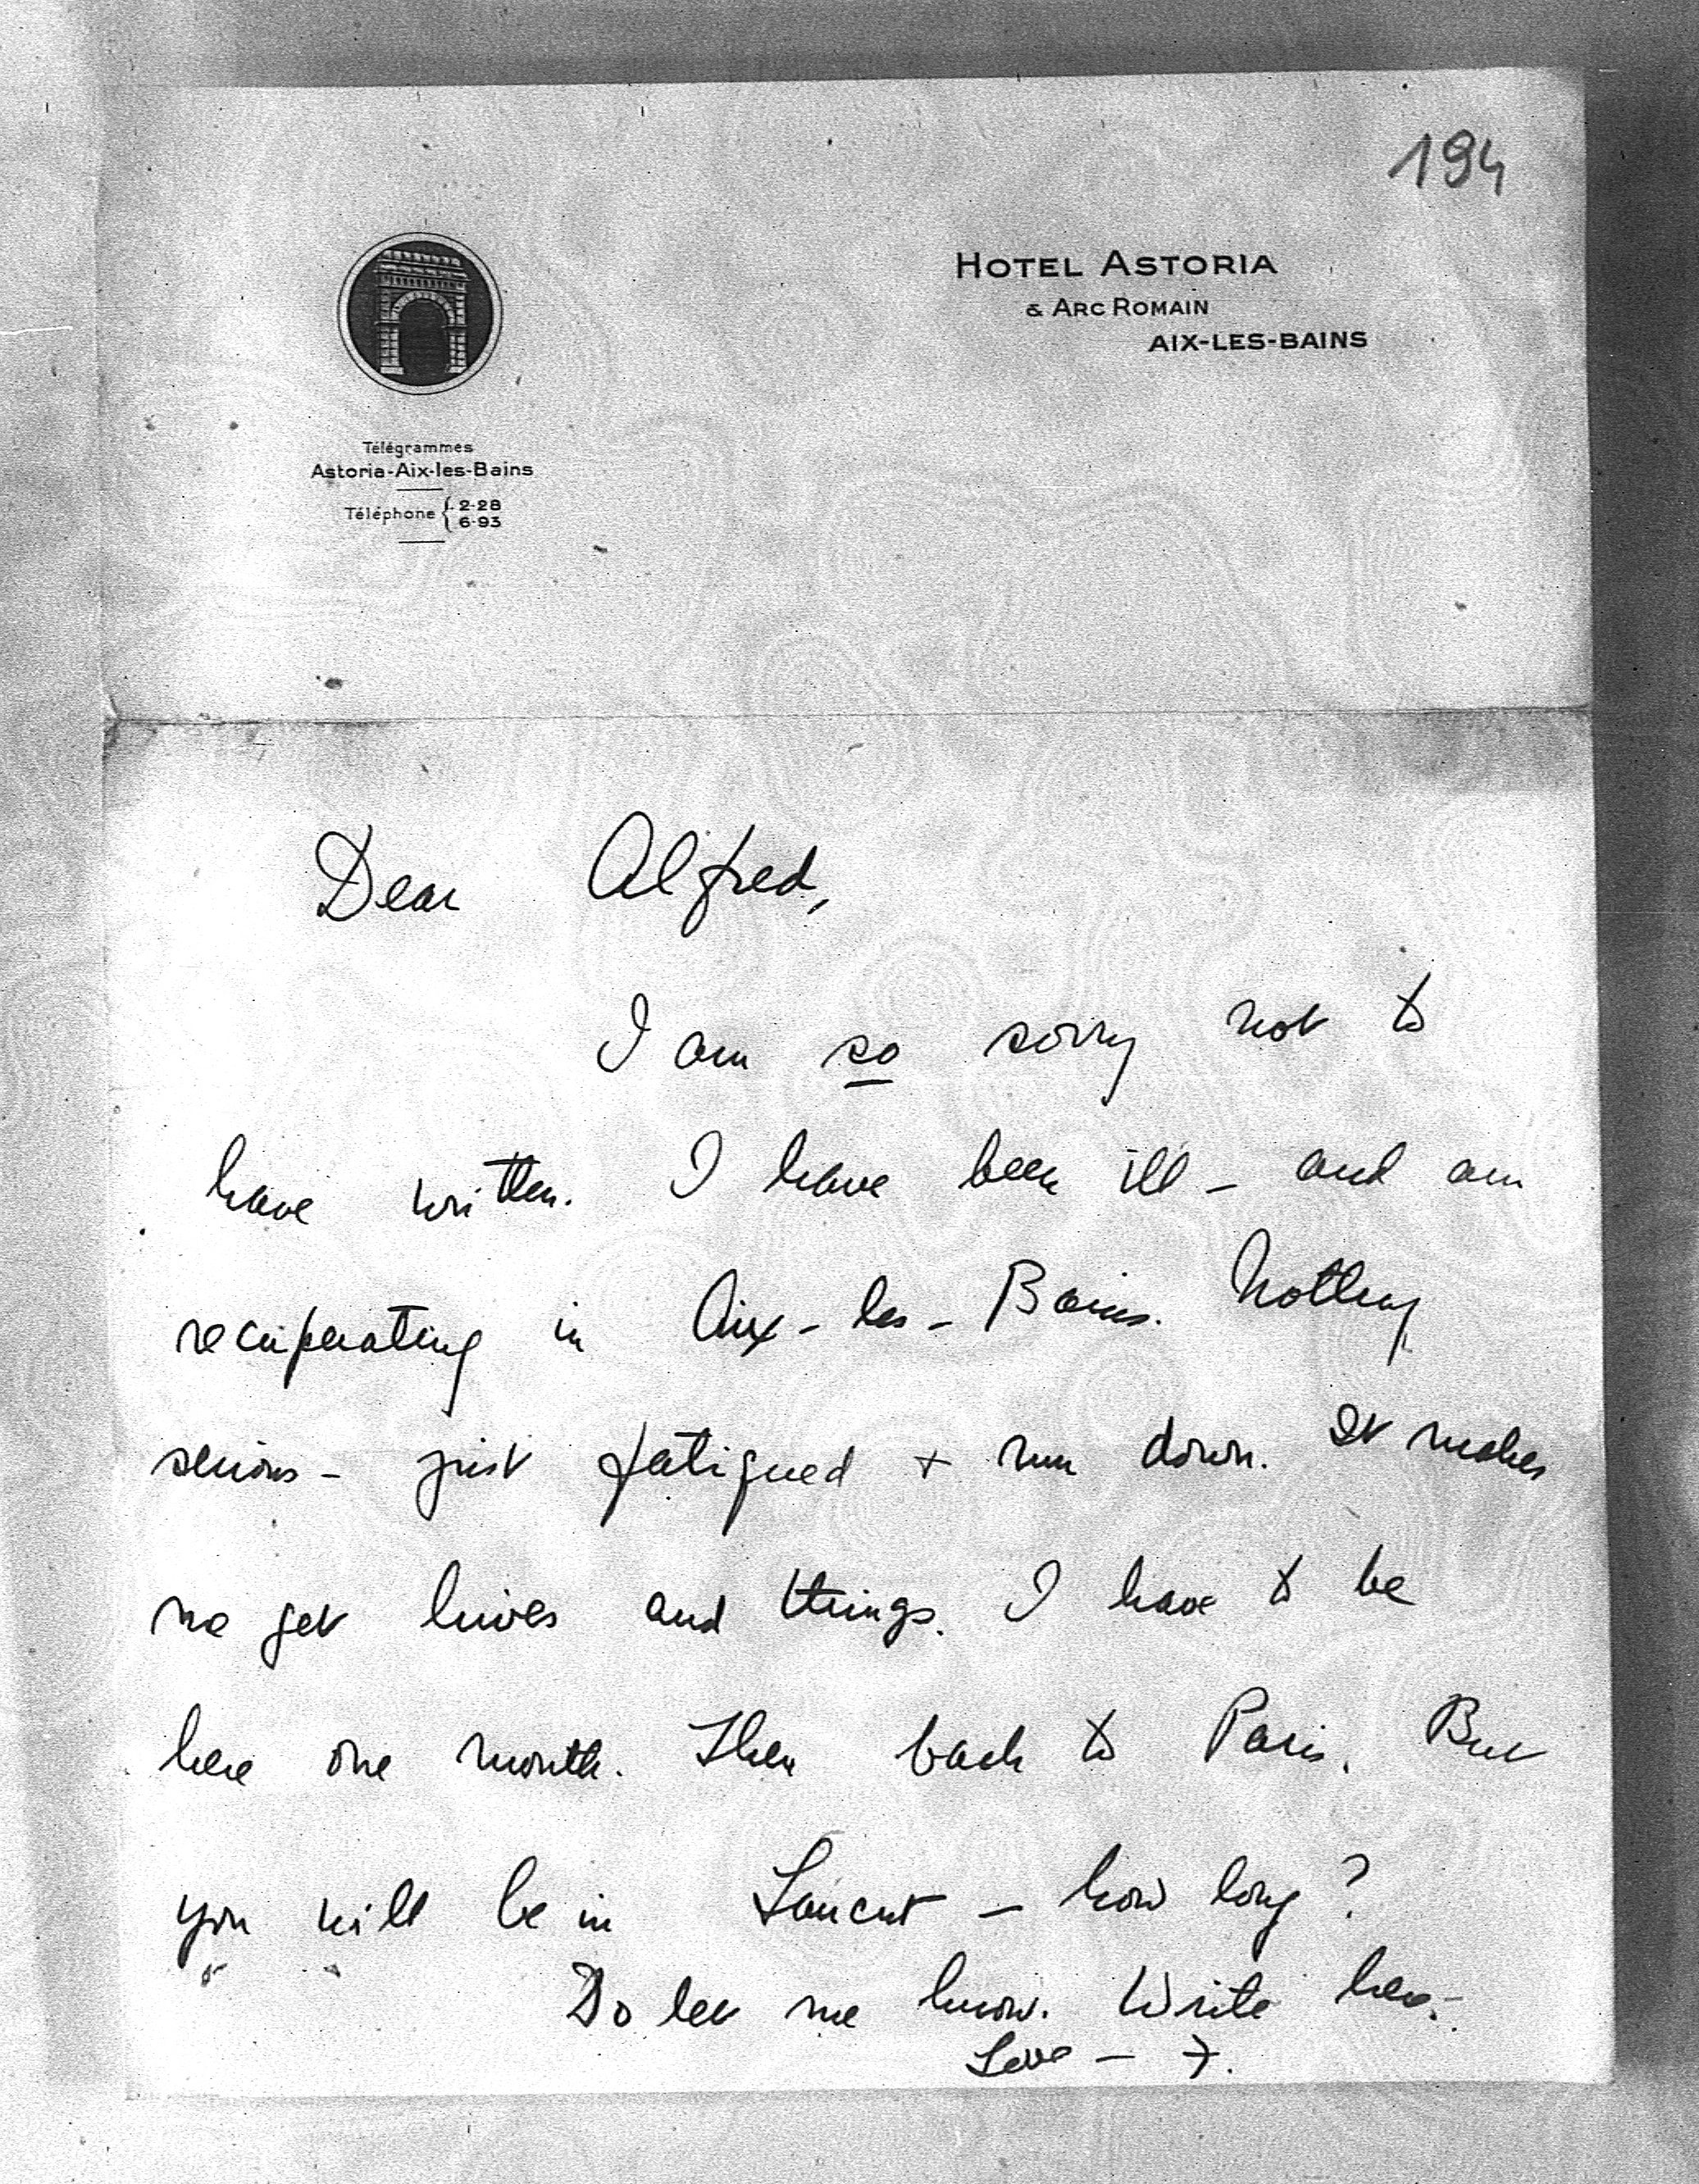 194
HOTEL ASTORIA
& ARC ROMAIN
AIX-LES-BAINS
Télégrammes
Astoria-Aix-les-Bains
Téléphone { 2-28
6-93
Dear Alfred,
I am so sorry not to
have written. I have been ill - and am
recuperating in Aix-les-Bains. Nothing
serious - just fatigued + run down. It makes
me get hives and things. I have to be
here one month. Then back to Paris. But
you will be in - how long?
Do let me know. Write here.
Love -